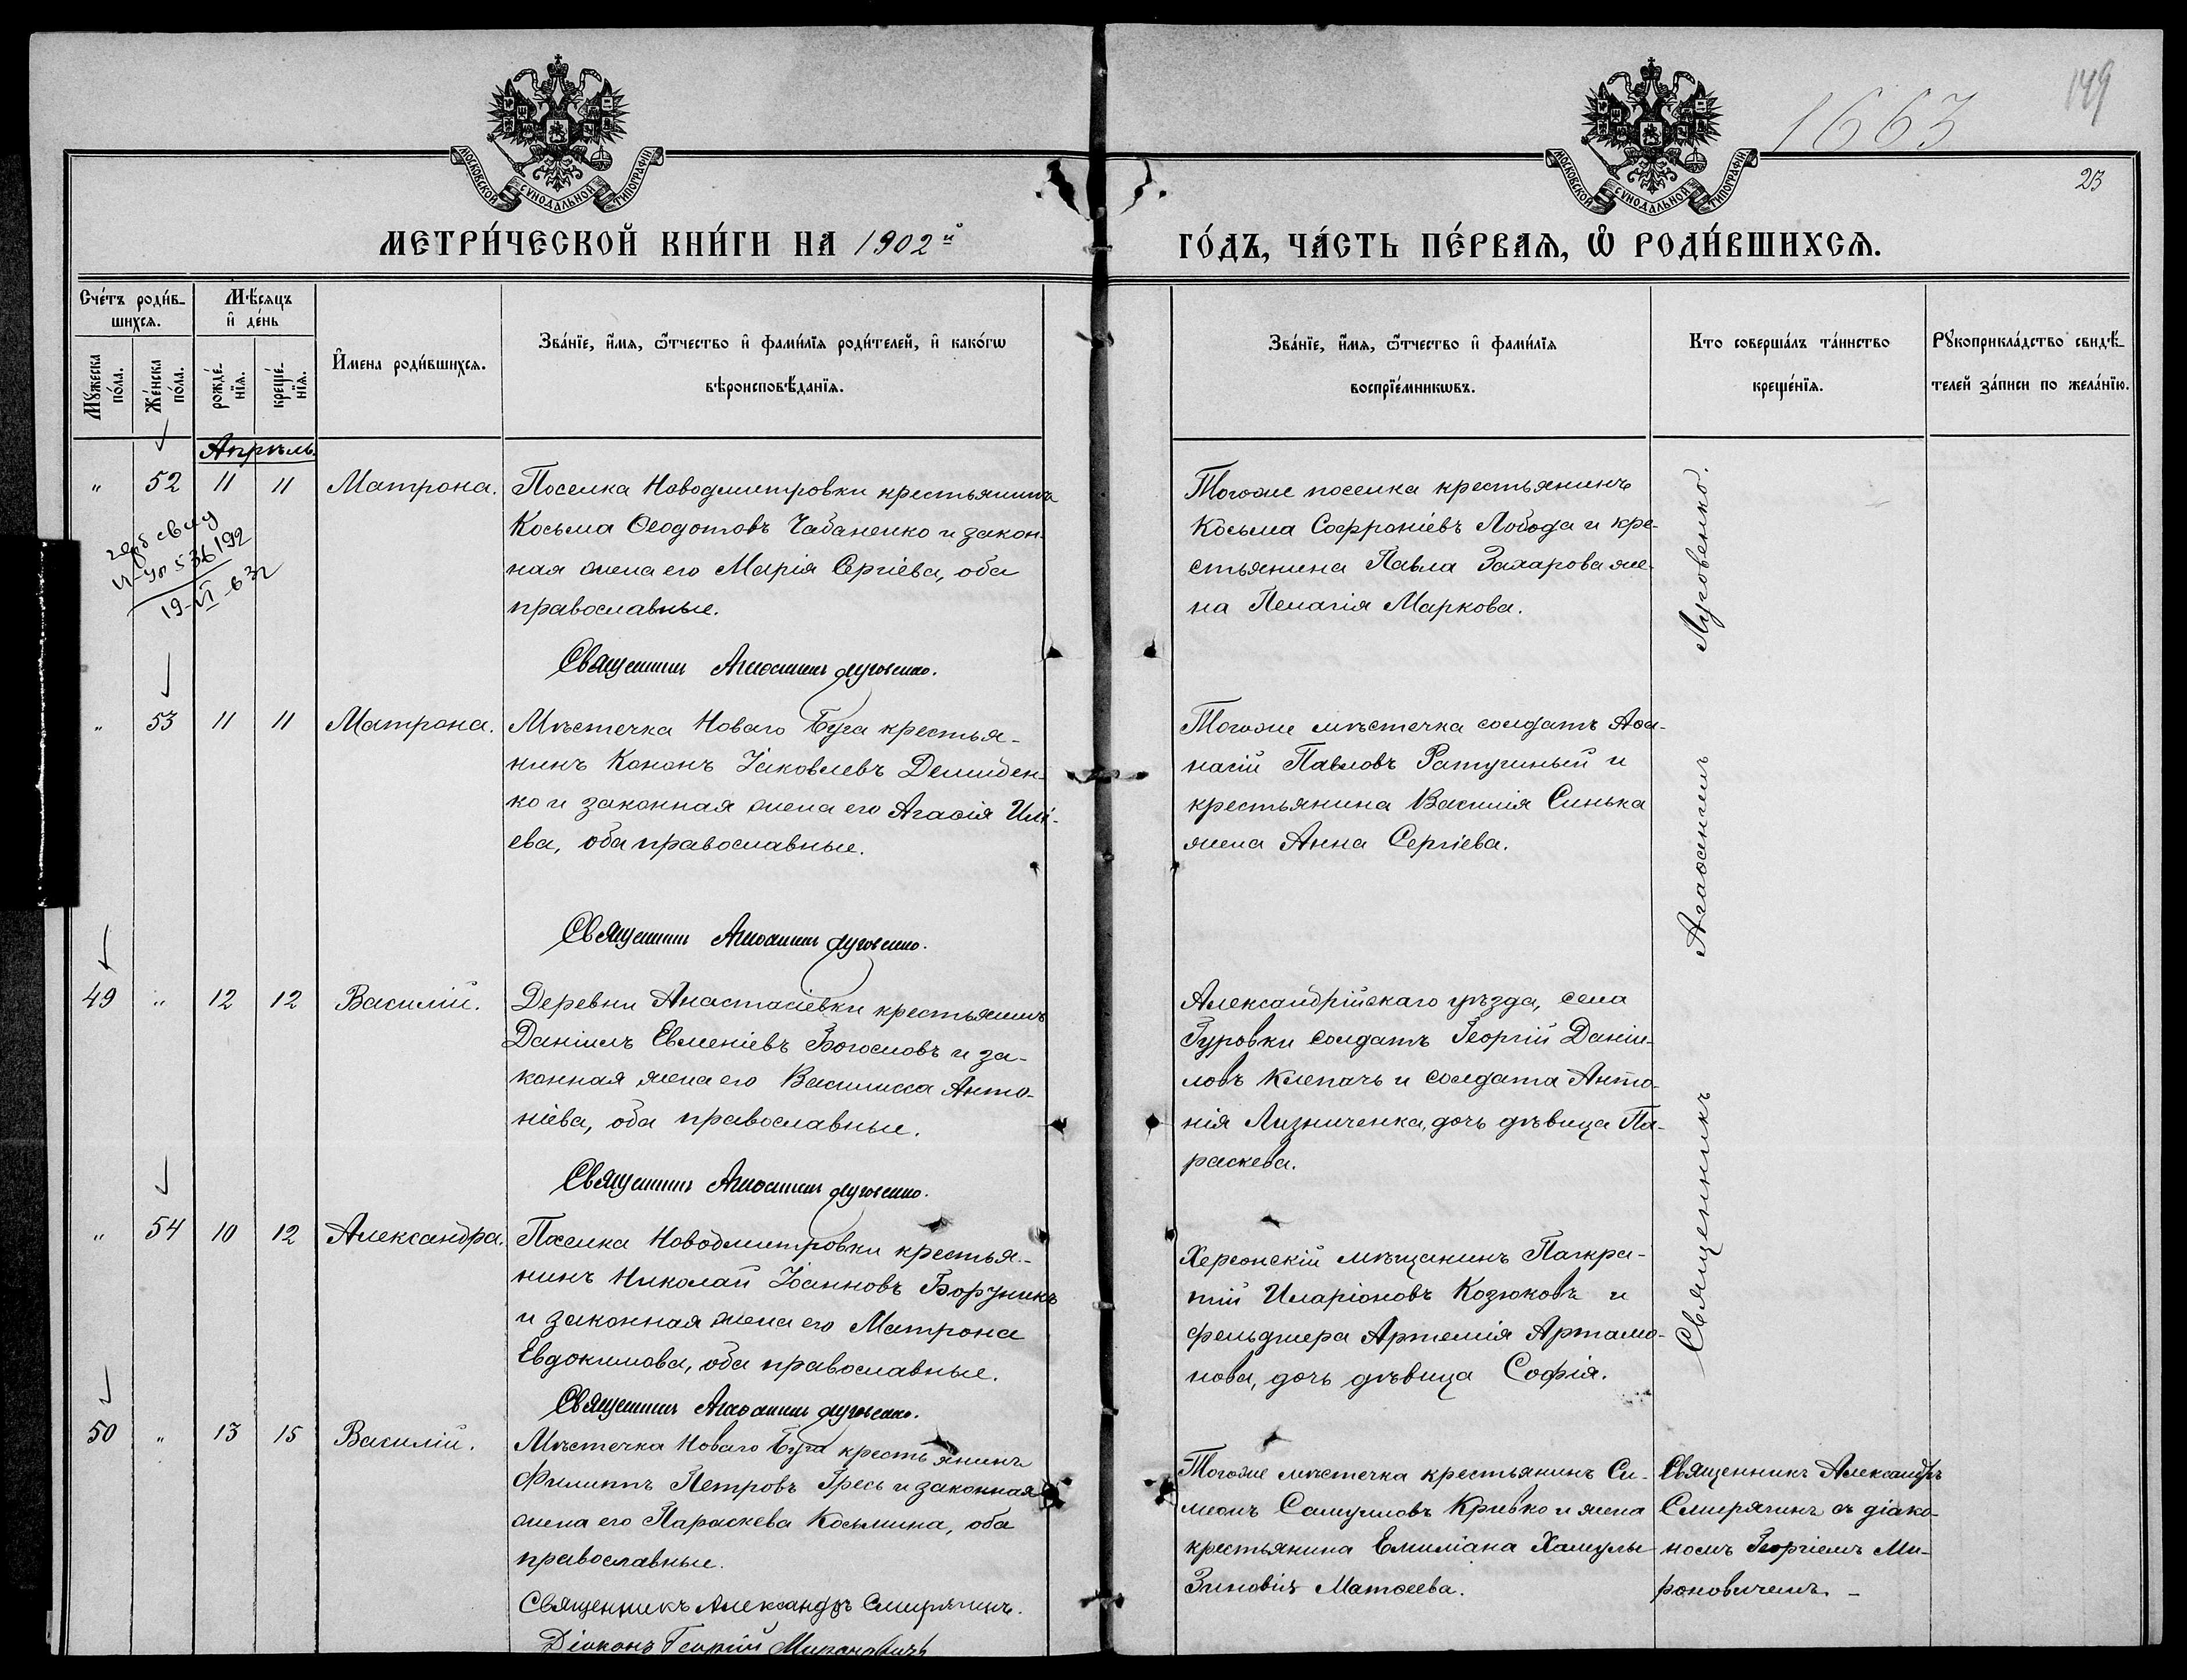 МОСКОВСКОЙ СѴНОДАЛЬНОЙ ТИПОГРАФІИ
МОСКОВСКОЙ СѴНОДАЛЬНОЙ ТИПОГРАФІИ
1663
149
23
МЕТРИ́ЧЕСКОЙ КНИ́ГИ НА 1902й
ГО́ДЪ, ЧА́СТЬ ПЕ́РВАЯ, Ѽ РОДИ́ВШИХСЯ.
Сче́тъ роди́в-
шихся.
Мꙋ́жеска по́ла.
Же́нска по́ла.
Мѣ́сяцъ
и҆ де́нь
рожде́-
нїя.
креще́-
нїя.
И҆мена роди́вшихся.
Зва́нїе, и҆́мя, ѻ҆́тчество и҆ фами́лїя роди́телей, и҆ како́гѡ
вѣроисповѣ́данїя.
Зва́нїе, и҆́мя, ѻ҆́тчество и҆ фами́лїя
воспрїе́мникѡвъ.
Кто соверша́лъ та́инство
креще́нїя.
Рꙋкоприкла́дство свидѣ́-
телей за́писи по жела́нїю.
Апрѣль.
" 52 11 11 Матрона.
Поселка Новодмитровки крестьянинъ
Косьма Ѳеодотовъ Чабаненко и закон-
ная жена его Марія Сергіева, оба
православные.
Священникъ Агаѳангелъ Луговенко.
19-VI-63
Тогоже поселка крестьянинъ
Косьма Софроніевъ Лобода и кре-
стьянина Павла Захарова же-
на Пелагія Маркова.
" 53 11 11 Матрона.
Мѣстечка Новаго Буга крестья-
нинъ Кононъ Іаковлевъ Демиден-
ко и законная жена его Агаѳія Илі-
ева, оба православные.
Священникъ Агаѳангелъ Луговенко.
Тогоже мѣстечка солдатъ Аѳа-
насій Павловъ Ратушный и
крестьянина Василія Синька
жена Анна Сергіева.
49 " 12 12 Василій.
Деревни Анастасіевки крестьянинъ
Даніилъ Евменіевъ Богословъ и за-
конная жена его Василисса Анто-
ніева, оба православные.
Священникъ Агаѳангелъ Луговенко.
Александрійскаго уѣзда, села
Гуровки солдатъ Георгій Даніи-
ловъ Клепачъ и солдата Анто-
нія Лизниченка, дочь дѣвица Па-
раскева.
" 54 10 12 Александра.
Поселка Новодмитровки крестья-
нинъ Николай Іоанновъ Борзникъ
и законная жена его Матрона
Евдокимова, оба православные.
Священникъ Агаѳангелъ Луговенко.
Херсонскій мѣщанинъ Панкра-
тій Иларіоновъ Козюковъ и
фельдшера Артемія Артамо-
нова, дочь дѣвица Софія.
Священникъ Агаѳангелъ Луговенко.
50 " 13 15 Василій.
Мѣстечка Новаго Буга крестьянинъ
Филиппъ Петровъ Гресь и законная
жена его Параскева Косьмина, оба
православные.
Священникъ Александръ Смирягинъ.
Діаконъ Георгій Мироновичъ
Тогоже мѣстечка крестьянинъ Си-
меонъ Самуиловъ Кривко и жена
крестьянина Емиліана Хамулы
Зиновія Матѳеева.
Священникъ Александръ
Смирягинъ съ діако-
номъ Георгіемъ Ми-
роновичемъ.